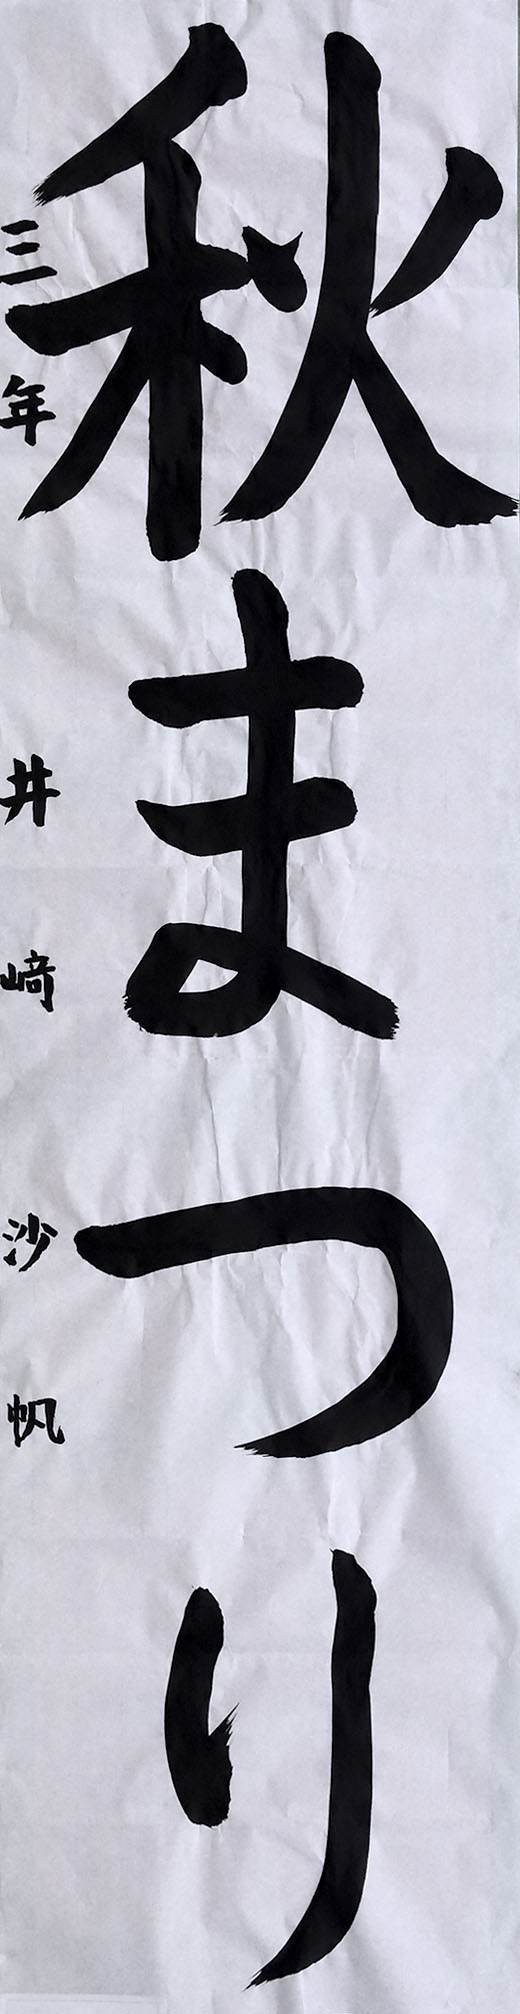 秋まつり
三年 井﨑沙帆